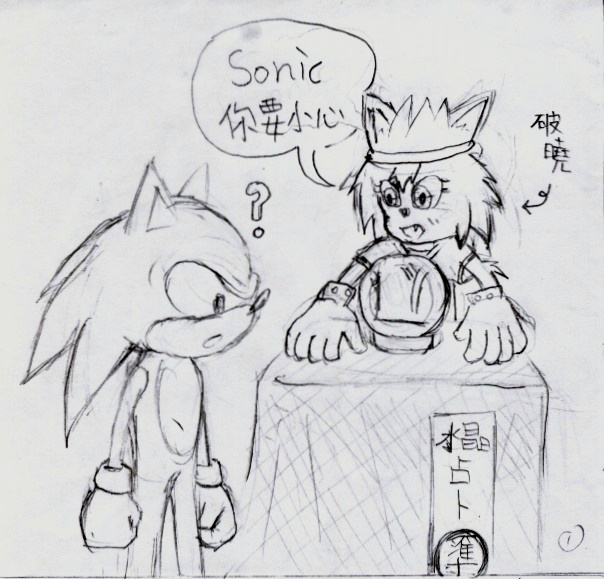 Sonic
你要小心
?
破
曉
水晶
占
卜
準
1